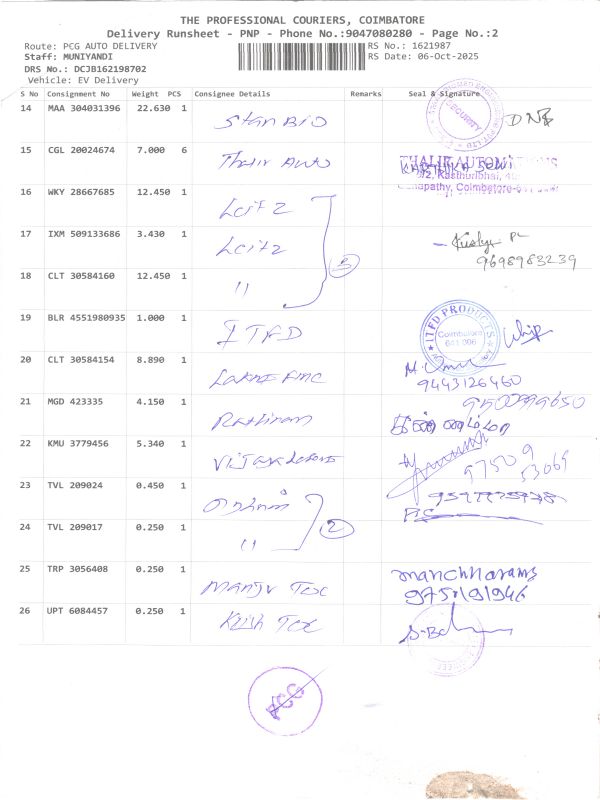 THE PROFESSIONAL COURIERS, COIMBATORE
Delivery Runsheet - PNP - Phone No.:9047080280 - Page No.:2
Route: PCG AUTO DELIVERY
RS No.: 1621987
Staff: MUNIYANDI
RS Date: 06-Oct-2025
DRS No.: DCJB162198702
Vehicle: EV Delivery
S No Consignment No Weight PCS Consignee Details Remarks Seal & Signature
14 MAA 304031396 22.630 1
Stan BIO
SECURITY
DNB
15 CGL 20024674 7.000 6
Thalir Auto
THALIR AUTOMATIONS
Coimbatore
16 WKY 28667685 12.450 1
Lcit 2
17 IXM 509133686 3.430 1
Lcit 2
3
9698983239
18 CLT 30584160 12.450 1
"
19 BLR 4551980935 1.000 1
ITFD
ITFD PRODUCTS
Coimbatore
641 006
20 CLT 30584154 8.890 1
9443126460
21 MGD 423335 4.150 1
Rathinam
22 KMU 3779456 5.340 1
97509
53069
23 TVL 209024 0.450 1
24 TVL 209017 0.250 1
"
2
25 TRP 3056408 0.250 1
Manju Tex
26 UPT 6084457 0.250 1
Krish Tex
PCG